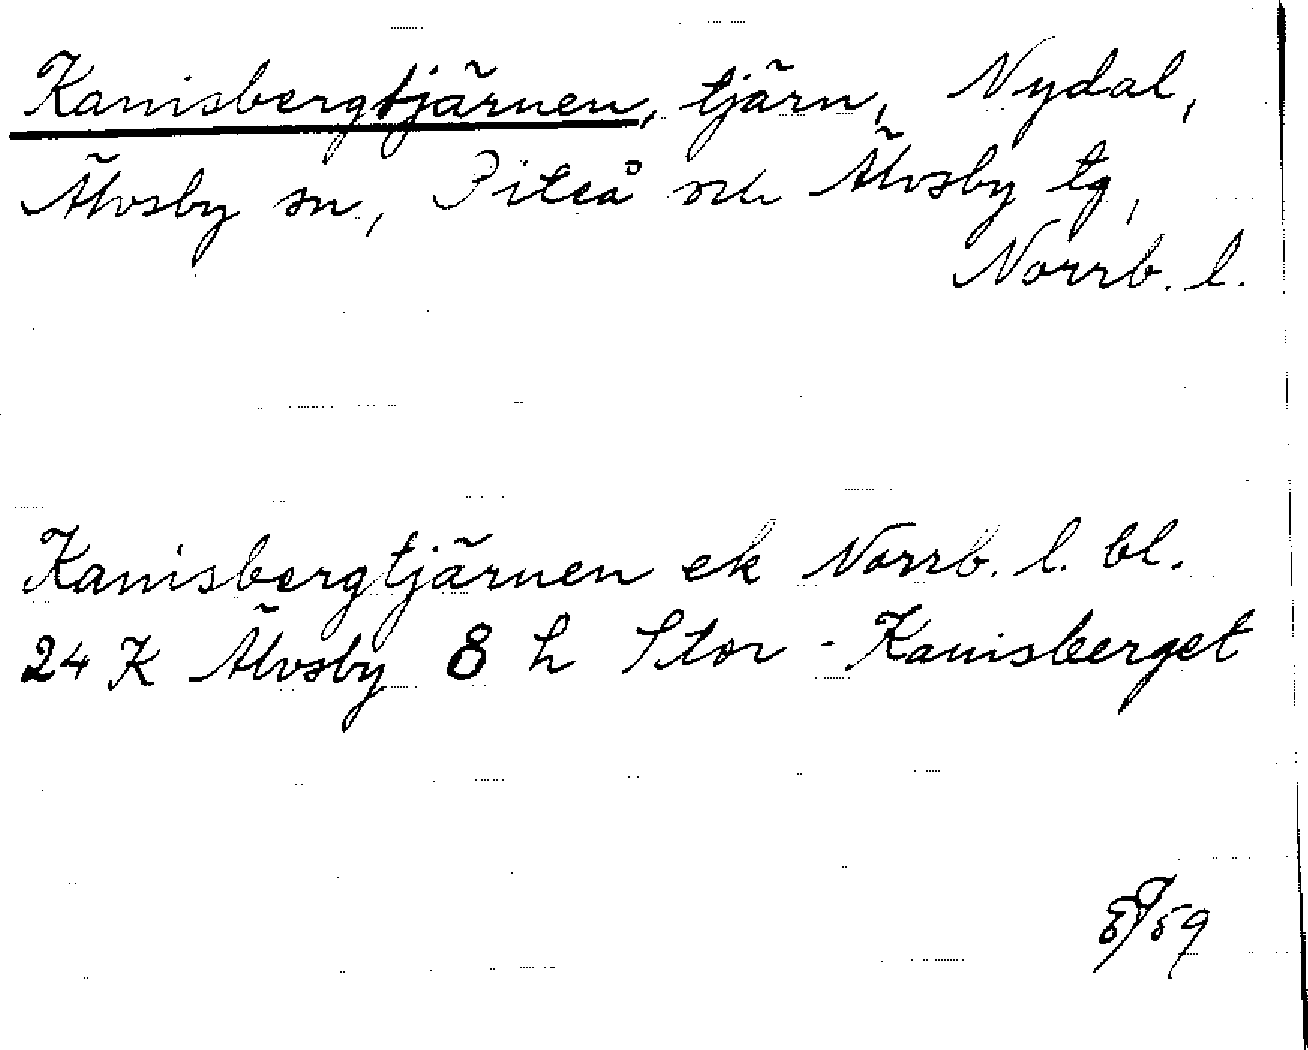 Kanisbergtjärnen, tjärn, Nydal,
Älvsby sn, Piteå och Älvsby tg,
Norrb. l.
Kanisbergtjärnen ek Norrb. l. bl.
24 K Älvsby 8 h Stor-Kanisberget